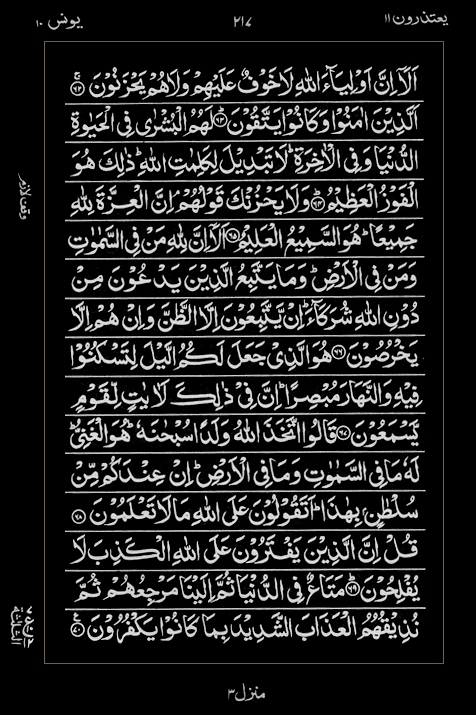 یعتذرون ۱۱
۲۱۷
یونس ۱۰
اَلَاۤ اِنَّ اَوْلِیَآءَ اللّٰهِ لَا خَوْفٌ عَلَیْهِمْ وَلَا هُمْ یَحْزَنُوْنَ ﴿۶۲﴾
الَّذِیْنَ اٰمَنُوْا وَكَانُوْا یَتَّقُوْنَ ﴿۶۳﴾ لَهُمُ الْبُشْرٰی فِی الْحَیٰوةِ
الدُّنْیَا وَفِی الْاٰخِرَةِ ؕ لَا تَبْدِیْلَ لِكَلِمٰتِ اللّٰهِ ؕ ذٰلِكَ هُوَ
الْفَوْزُ الْعَظِیْمُ ﴿۶۴﴾ وَلَا یَحْزُنْكَ قَوْلُهُمْ ۘ اِنَّ الْعِزَّةَ لِلّٰهِ
جَمِیْعًا ؕ هُوَ السَّمِیْعُ الْعَلِیْمُ ﴿۶۵﴾ اَلَاۤ اِنَّ لِلّٰهِ مَنْ فِی السَّمٰوٰتِ
وَمَنْ فِی الْاَرْضِ ؕ وَمَا یَتَّبِعُ الَّذِیْنَ یَدْعُوْنَ مِنْ
دُوْنِ اللّٰهِ شُرَكَآءَ ؕ اِنْ یَّتَّبِعُوْنَ اِلَّا الظَّنَّ وَاِنْ هُمْ اِلَّا
یَخْرُصُوْنَ ﴿۶۶﴾ هُوَ الَّذِیْ جَعَلَ لَكُمُ الَّیْلَ لِتَسْكُنُوْا
فِیْهِ وَالنَّهَارَ مُبْصِرًا ؕ اِنَّ فِیْ ذٰلِكَ لَاٰیٰتٍ لِّقَوْمٍ
یَّسْمَعُوْنَ ﴿۶۷﴾ قَالُوا اتَّخَذَ اللّٰهُ وَلَدًا سُبْحٰنَهٗ ؕ هُوَ الْغَنِیُّ ؕ
لَهٗ مَا فِی السَّمٰوٰتِ وَمَا فِی الْاَرْضِ ؕ اِنْ عِنْدَكُمْ مِّنْ
سُلْطٰنٍۭ بِهٰذَا ؕ اَتَقُوْلُوْنَ عَلَی اللّٰهِ مَا لَا تَعْلَمُوْنَ ﴿۶۸﴾
قُلْ اِنَّ الَّذِیْنَ یَفْتَرُوْنَ عَلَی اللّٰهِ الْكَذِبَ لَا
یُفْلِحُوْنَ ﴿۶۹﴾ مَتَاعٌ فِی الدُّنْیَا ثُمَّ اِلَیْنَا مَرْجِعُهُمْ ثُمَّ
نُذِیْقُهُمُ الْعَذَابَ الشَّدِیْدَ بِمَا كَانُوْا یَكْفُرُوْنَ ﴿۷۰﴾
وقف لازم
منزل ۳